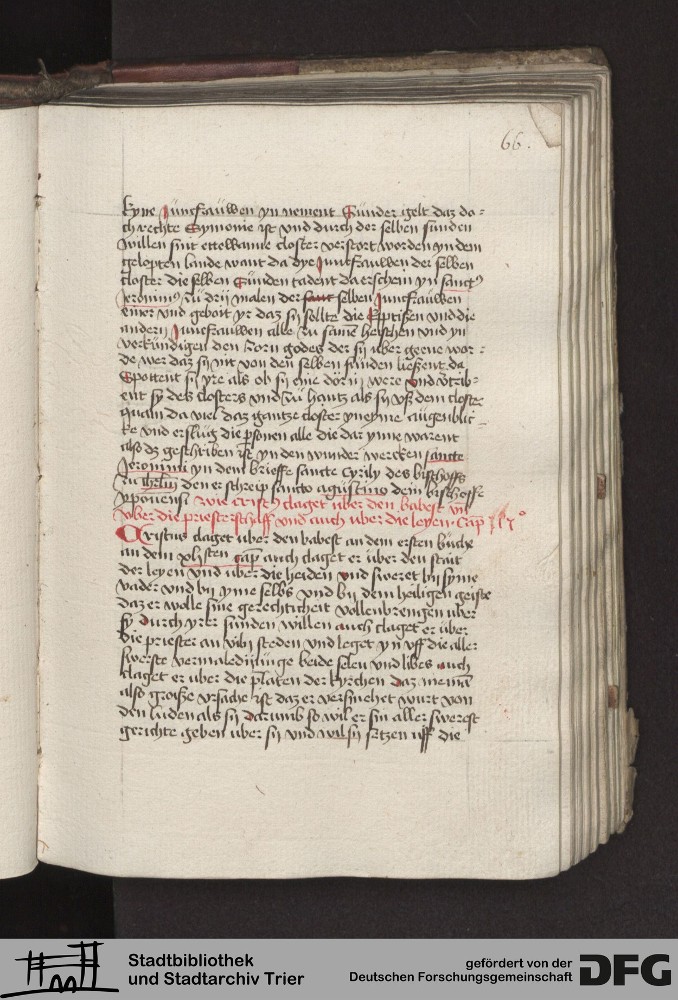 66.
kyne Juncfrauwen yn nement Gunder gelt daz do=
ch rechte Symonie ist vnd durch der selben sunden
willen sint ettelwanne closter verstort worden yn dem
gelopten lande want da dye Juncfrauwen der selben
closter die selben Sunden tadent da erschein yn sanctus
Jeronimus zu drij malen der sant selben Juncfrauwen
einer vnd geboit yr daz sy sollte die Eptißen vnd die
andern Juncfrauwen alle zu samen heischen vnd yn
verkundigen den zorn godes der sij uber geene wor=
de wer daz sij nit von den selben sunden ließent da
Spottent sij yre als ob sij eine dorin were vnd vertrib=
ent sy des closters vnd zu hantz als sij vß dem closter
quam da viel daz gantze closter yn eyme augenblic=
ke vnd erslug die personen alle die dar ynne warent
also dz geschriben ist yn den wunder wercken sancte
Jeronimi yn dem brieffe sancte Cyrily des bischoffs
zu ihrlm den er schreip sancto agustino dem bischoffe
yponensi Wie cristus claget uber den babest vnd
vber die priesterschafft vnd auch uber die leyen Cap
Cristus claget uber den babest an dem ersten buche
an dem xlisten cap auch claget er uber den stait
der leyen vnd uber die heiden vnd sweret bij syme
vader vnd bij yme selbs vnd bij dem heiligen geiste
daz er wolle sine gerechtikeit vollenbrengen uber
sy durch yrer sunden willen auch claget er uber
die priester an vil steden vnd leget yn vff die aller
swerste vermaledijunge beide selen vnd libes auch
claget er uber die platen der kyrchen daz nieman
also groiße vrsache ist daz er versmehet wurt von
den luden als sij Darumb so wil er sin aller swerest
gerichte geben uber sij vnd wil sij setzen uff die
Stadtbibliothek
und Stadtarchiv Trier
gefördert von der
Deutschen Forschungsgemeinschaft
DFG